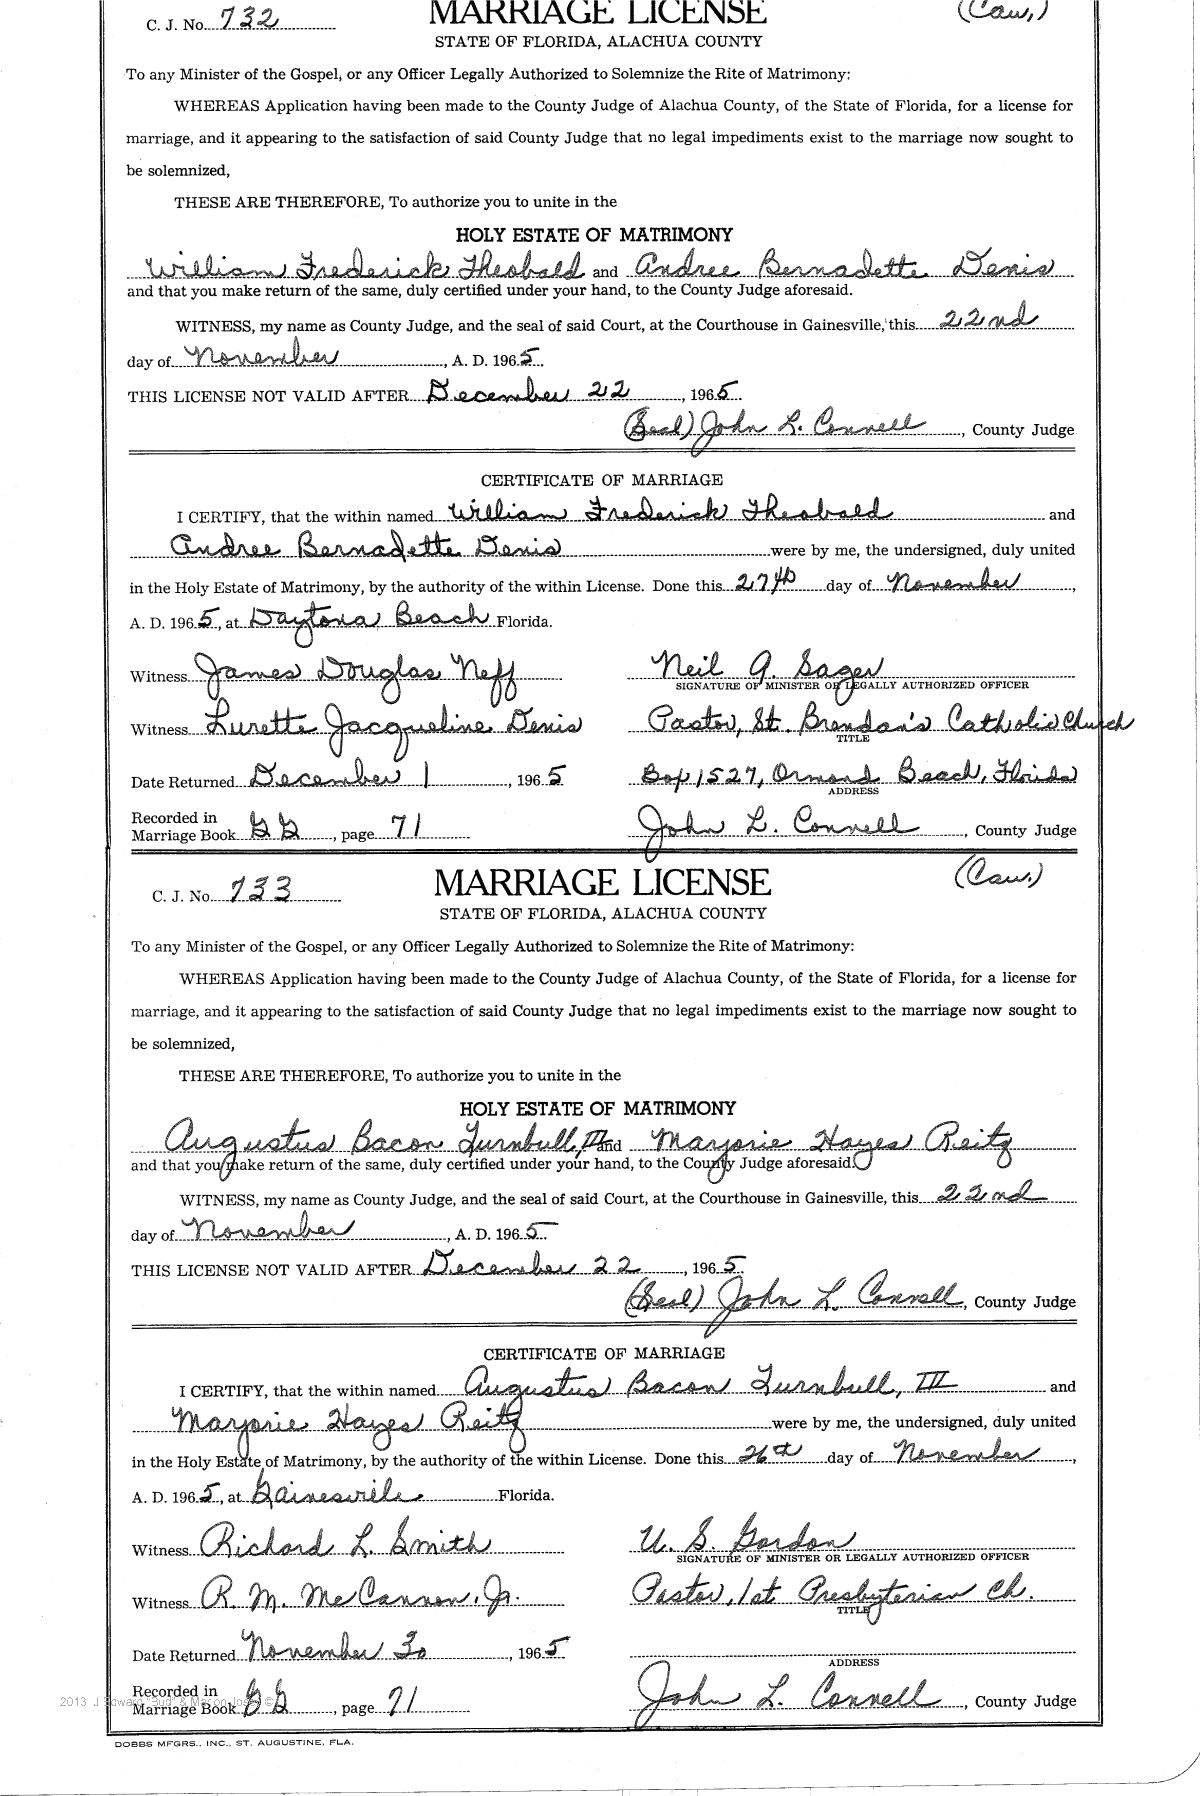 C. J. No. 732 MARRIAGE LICENSE (Cau.)
STATE OF FLORIDA, ALACHUA COUNTY
To any Minister of the Gospel, or any Officer Legally Authorized to Solemnize the Rite of Matrimony:
WHEREAS Application having been made to the County Judge of Alachua County, of the State of Florida, for a license for
marriage, and it appearing to the satisfaction of said County Judge that no legal impediments exist to the marriage now sought to
be solemnized,
THESE ARE THEREFORE, To authorize you to unite in the
HOLY ESTATE OF MATRIMONY
William Frederick Theobald and Andree Bernadette Denis
and that you make return of the same, duly certified under your hand, to the County Judge aforesaid.
WITNESS, my name as County Judge, and the seal of said Court, at the Courthouse in Gainesville, this 22nd
day of November, A. D. 1965.
THIS LICENSE NOT VALID AFTER December 22, 1965.
(Seal) John L. Connell, County Judge
CERTIFICATE OF MARRIAGE
I CERTIFY, that the within named William Frederick Theobald and
Andree Bernadette Denis were by me, the undersigned, duly united
in the Holy Estate of Matrimony, by the authority of the within License. Done this 27th day of November,
A. D. 1965, at Daytona Beach Florida.
Witness James Douglas Neff Neil A. Sager
SIGNATURE OF MINISTER OR LEGALLY AUTHORIZED OFFICER
Witness Lurette Jacqueline Denis Pastor, St. Brendan's Catholic Church
TITLE
Date Returned December 1, 1965 Box 1527, Ormond Beach, Florida
ADDRESS
Recorded in
Marriage Book GG, page 71 John L. Connell, County Judge
C. J. No. 733 MARRIAGE LICENSE (Cau.)
STATE OF FLORIDA, ALACHUA COUNTY
To any Minister of the Gospel, or any Officer Legally Authorized to Solemnize the Rite of Matrimony:
WHEREAS Application having been made to the County Judge of Alachua County, of the State of Florida, for a license for
marriage, and it appearing to the satisfaction of said County Judge that no legal impediments exist to the marriage now sought to
be solemnized,
THESE ARE THEREFORE, To authorize you to unite in the
HOLY ESTATE OF MATRIMONY
Augustus Bacon Turnbull, III and Marjorie Hayes Reitz
and that you make return of the same, duly certified under your hand, to the County Judge aforesaid.
WITNESS, my name as County Judge, and the seal of said Court, at the Courthouse in Gainesville, this 22nd
day of November, A. D. 1965.
THIS LICENSE NOT VALID AFTER December 22, 1965.
(Seal) John L. Connell, County Judge
CERTIFICATE OF MARRIAGE
I CERTIFY, that the within named Augustus Bacon Turnbull, III and
Marjorie Hayes Reitz were by me, the undersigned, duly united
in the Holy Estate of Matrimony, by the authority of the within License. Done this 26th day of November,
A. D. 1965, at Gainesville Florida.
Witness Richard L. Smith U. S. Gordon
SIGNATURE OF MINISTER OR LEGALLY AUTHORIZED OFFICER
Witness R. M. McCannon, Jr. Pastor, 1st Presbyterian Ch.
TITLE
Date Returned November 30, 1965
ADDRESS
Recorded in
Marriage Book GG, page 71 John L. Connell, County Judge
DOBBS MFGRS., INC., ST. AUGUSTINE, FLA.